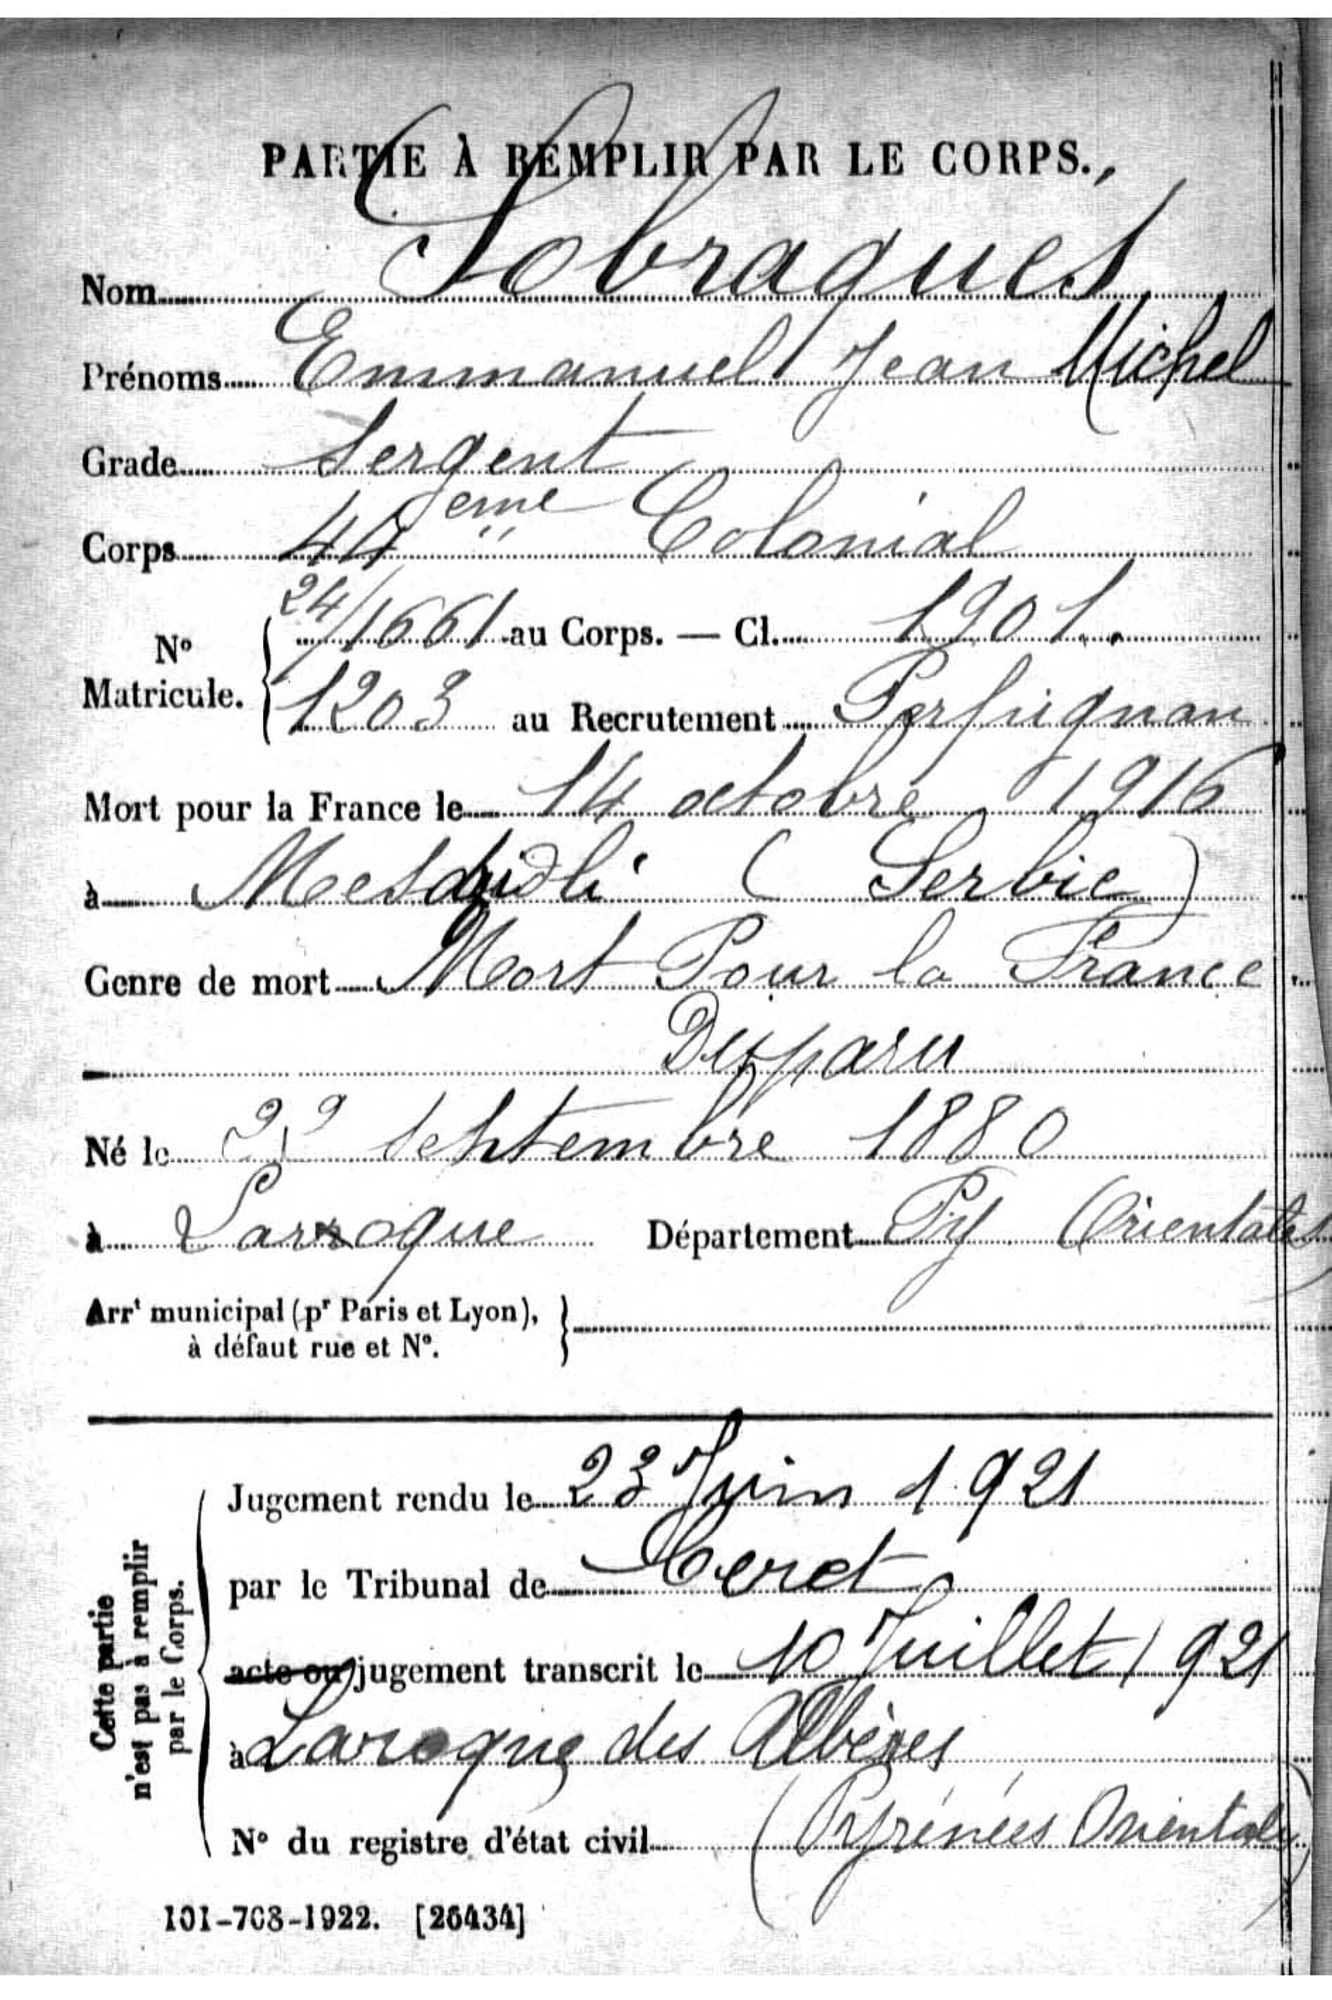 PARTIE À REMPLIR PAR LE CORPS.
Nom Sobraques
Prénoms Emmanuel Jean Michel
Grade Sergent
Corps 44 eme Colonial
24/1661 au Corps. — Cl. 1901.
N° Matricule.
1203 au Recrutement Perpignan
Mort pour la France le 14 octobre 1916
à (Serbie)
Genre de mort Mort Pour la France
Disparu
Né le 29 Septembre 1880
à Larroque Département Py Orientales
Arrt municipal (pr Paris et Lyon),
à défaut rue et N°.
Cette partie
n'est pas à remplir
par le Corps.
Jugement rendu le 23 Juin 1921
par le Tribunal de Ceret
acte ou jugement transcrit le 10 Juillet 1921
à Laroque des Albères
(Pyrénées Orientales)
N° du registre d'état civil
101-708-1922. [26434]